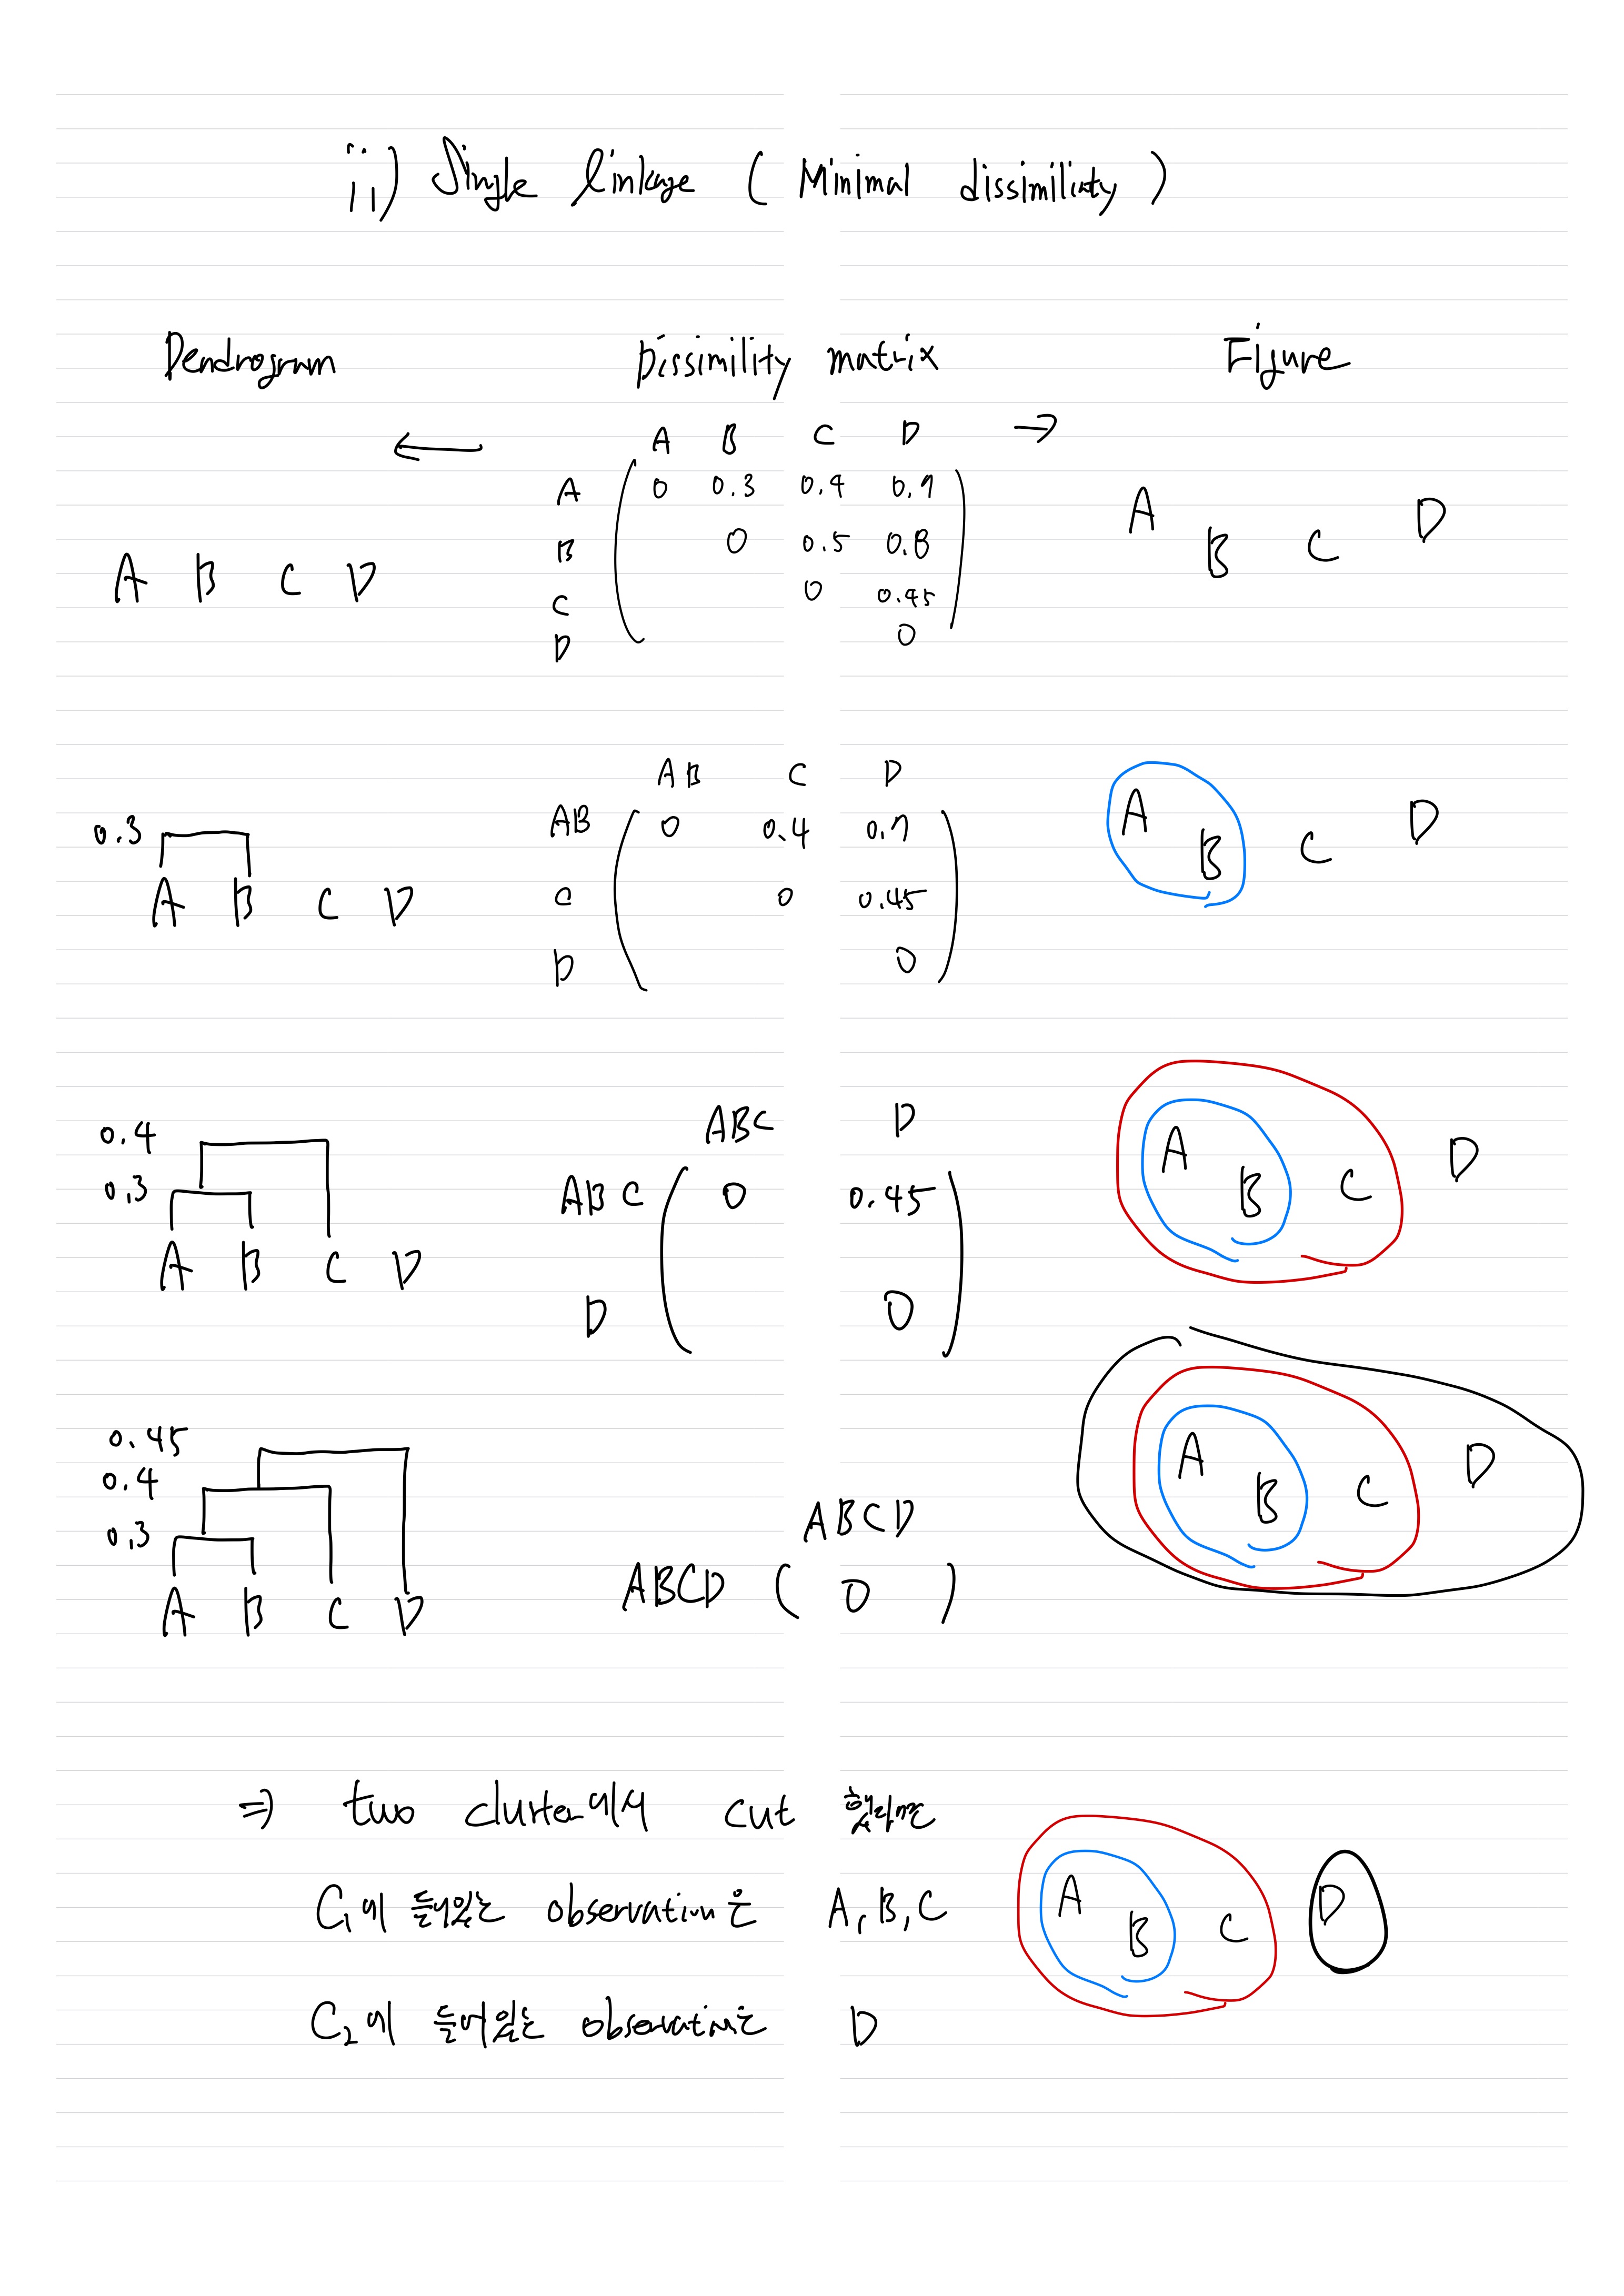 ii) Single linkage (Minimal dissimilirty)
Dendrogram Dissimility matrix Figure
← A B C D →
A 0 0.3 0.4 0.7
B 0 0.5 0.8
C 0 0.45
D 0
A B C D
A B C D
AB C D
AB 0 0.4 0.7
C 0 0.45
D 0
0.3
A B C D
A B C D
ABC D
ABC 0 0.45
D 0
0.4
0.3
A B C D
A B C D
ABCD
ABCD ( 0 )
0.45
0.4
0.3
A B C D
A B C D
⇒ two cluster에서 cut 했다면
C₁에 들어있는 observation은 A, B, C
C₂에 들어있는 observation은 D
A B C D